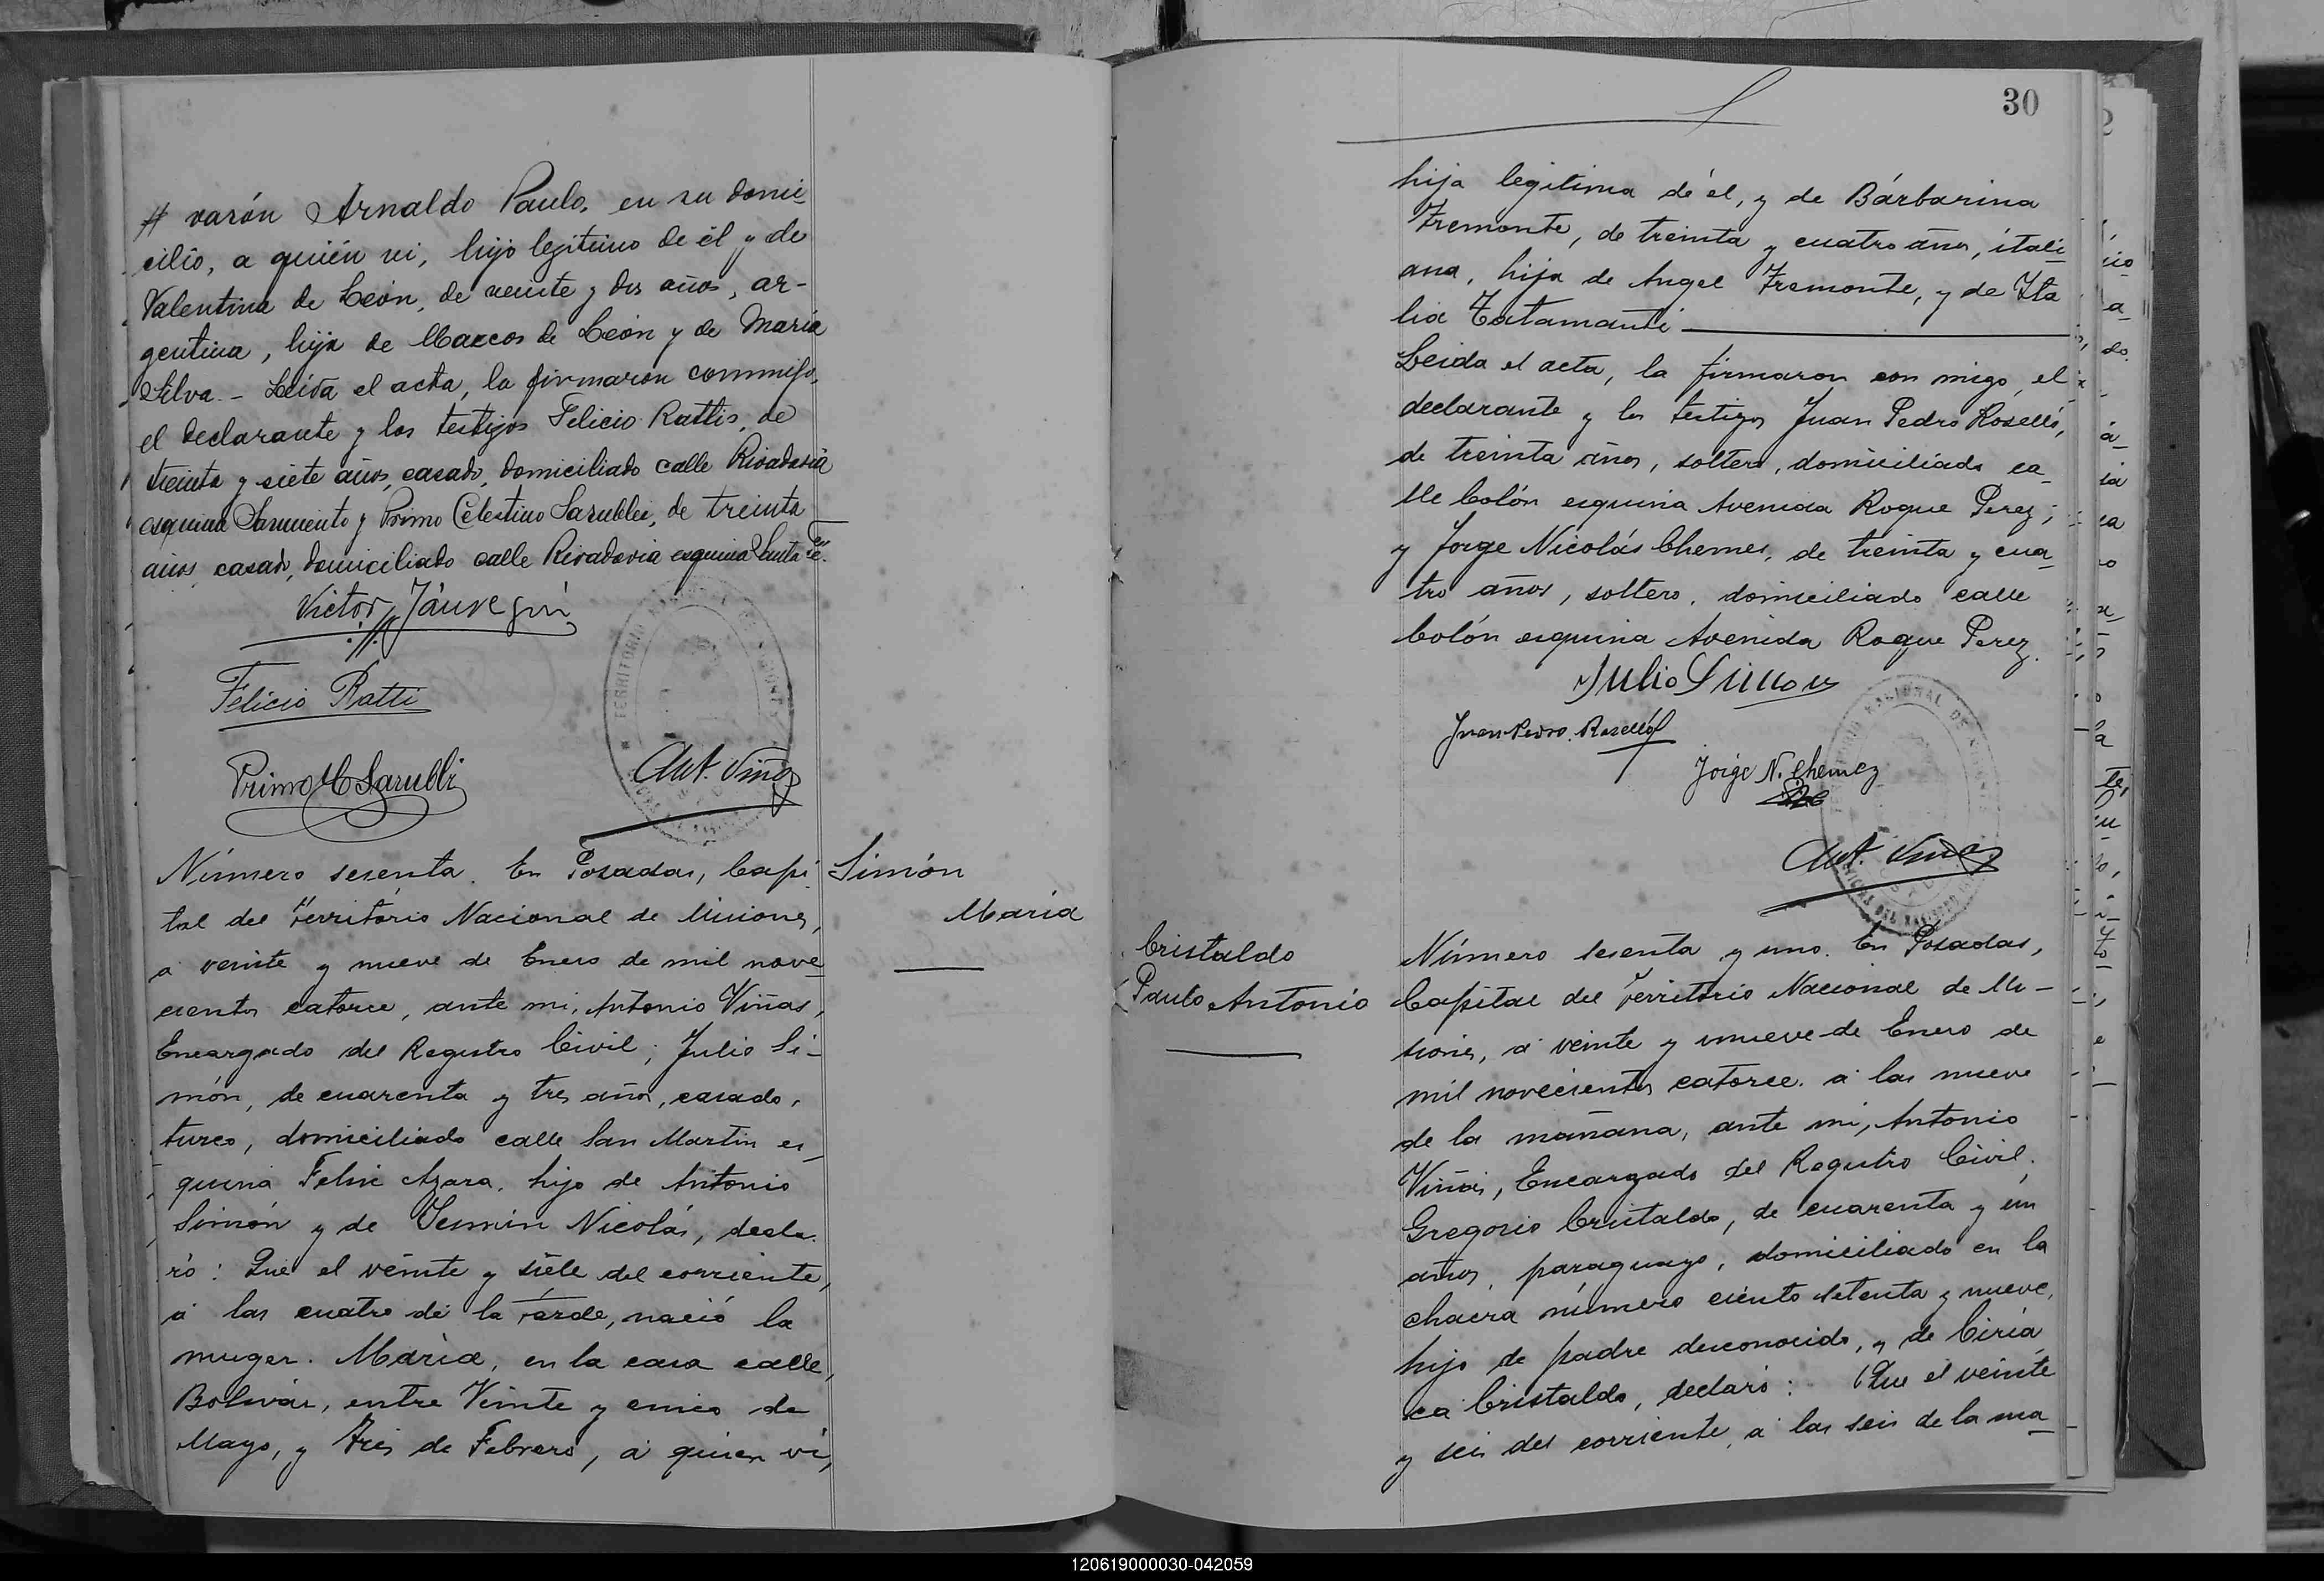 # varón Arnaldo Paulo, en su domi-
cilio, a quién vi, hijo legítimo de él y de
Valentina de León, de veinte y dos años, ar-
gentina, hija de Marcos de León y de María
Silva. - Leída el acta, la firmaron conmigo,
el declarante y los testigos Felicio Rattis, de
treinta y siete años, casado, domiciliado calle Rivadavia
esquina Sarmiento y Primo Celestino Sarubbi, de treinta
años, casado, domiciliado calle Rivadavia esquina Santa Fé.
Victor Jáuregui
Felicio Ratti
Primo C Sarubbi
Ant. Viñas
Número sesenta. En Posadas, Capi-
tal del Territorio Nacional de Misiones,
a veinte y nueve de Enero de mil nove-
cientos catorce, ante mi, Antonio Viñas,
Encargado del Registro Civil; Julio Si-
món, de cuarenta y tres años, casado,
turco, domiciliado calle San Martin es-
quina Felix Azara, hijo de Antonio
Simón y de Nicolás, decla-
ró: Que el veinte y siete del corriente,
á las cuatro de la tarde, nació la
muger. María, en la casa calle,
Bolívar, entre Veinte y cinco de
Mayo, y Tres de Febrero, á quien vi,
Simón
María
30
hija legitima de él, y de Bárbarina
Fremonte, de treinta y cuatro años, itali-
ana, hija de Angel Fremonte, y de Ita
lia Tatamanti
Leida el acta, la firmaron con migo, el
declarante y los testigos Juan Pedro Roselló,
de treinta años, soltero, domiciliado ca-
lle Colón esquina Avenida Roque Perez;
y Jorge Nicolás Chemes, de treinta y cua-
tro años, soltero, domiciliado calle
Colón esquina Avenida Roque Perez.
Julio Simon
Juan Pedro Roselló
Jorge N. Chemez
Ant. Viñas
Cristaldo
Paulo Antonio
Número sesenta y uno. En Posadas,
Capital del Territorio Nacional de Mi-
siones, á veinte y nueve de Enero de
mil novecientos catorce. á las nueve
de la mañana, ante mi, Antonio
Viñas, Encargado del Registro Civil.
Gregorio Cristaldo, de cuarenta y un
años, paraguayo, domiciliado en la
chacra número ciento setenta y nueve,
hijo de padre desconocido, y de Ciria
ca Cristaldo, declaró: Que el veinte
y seis del corriente, á las seis de la ma-
120619000030-042059